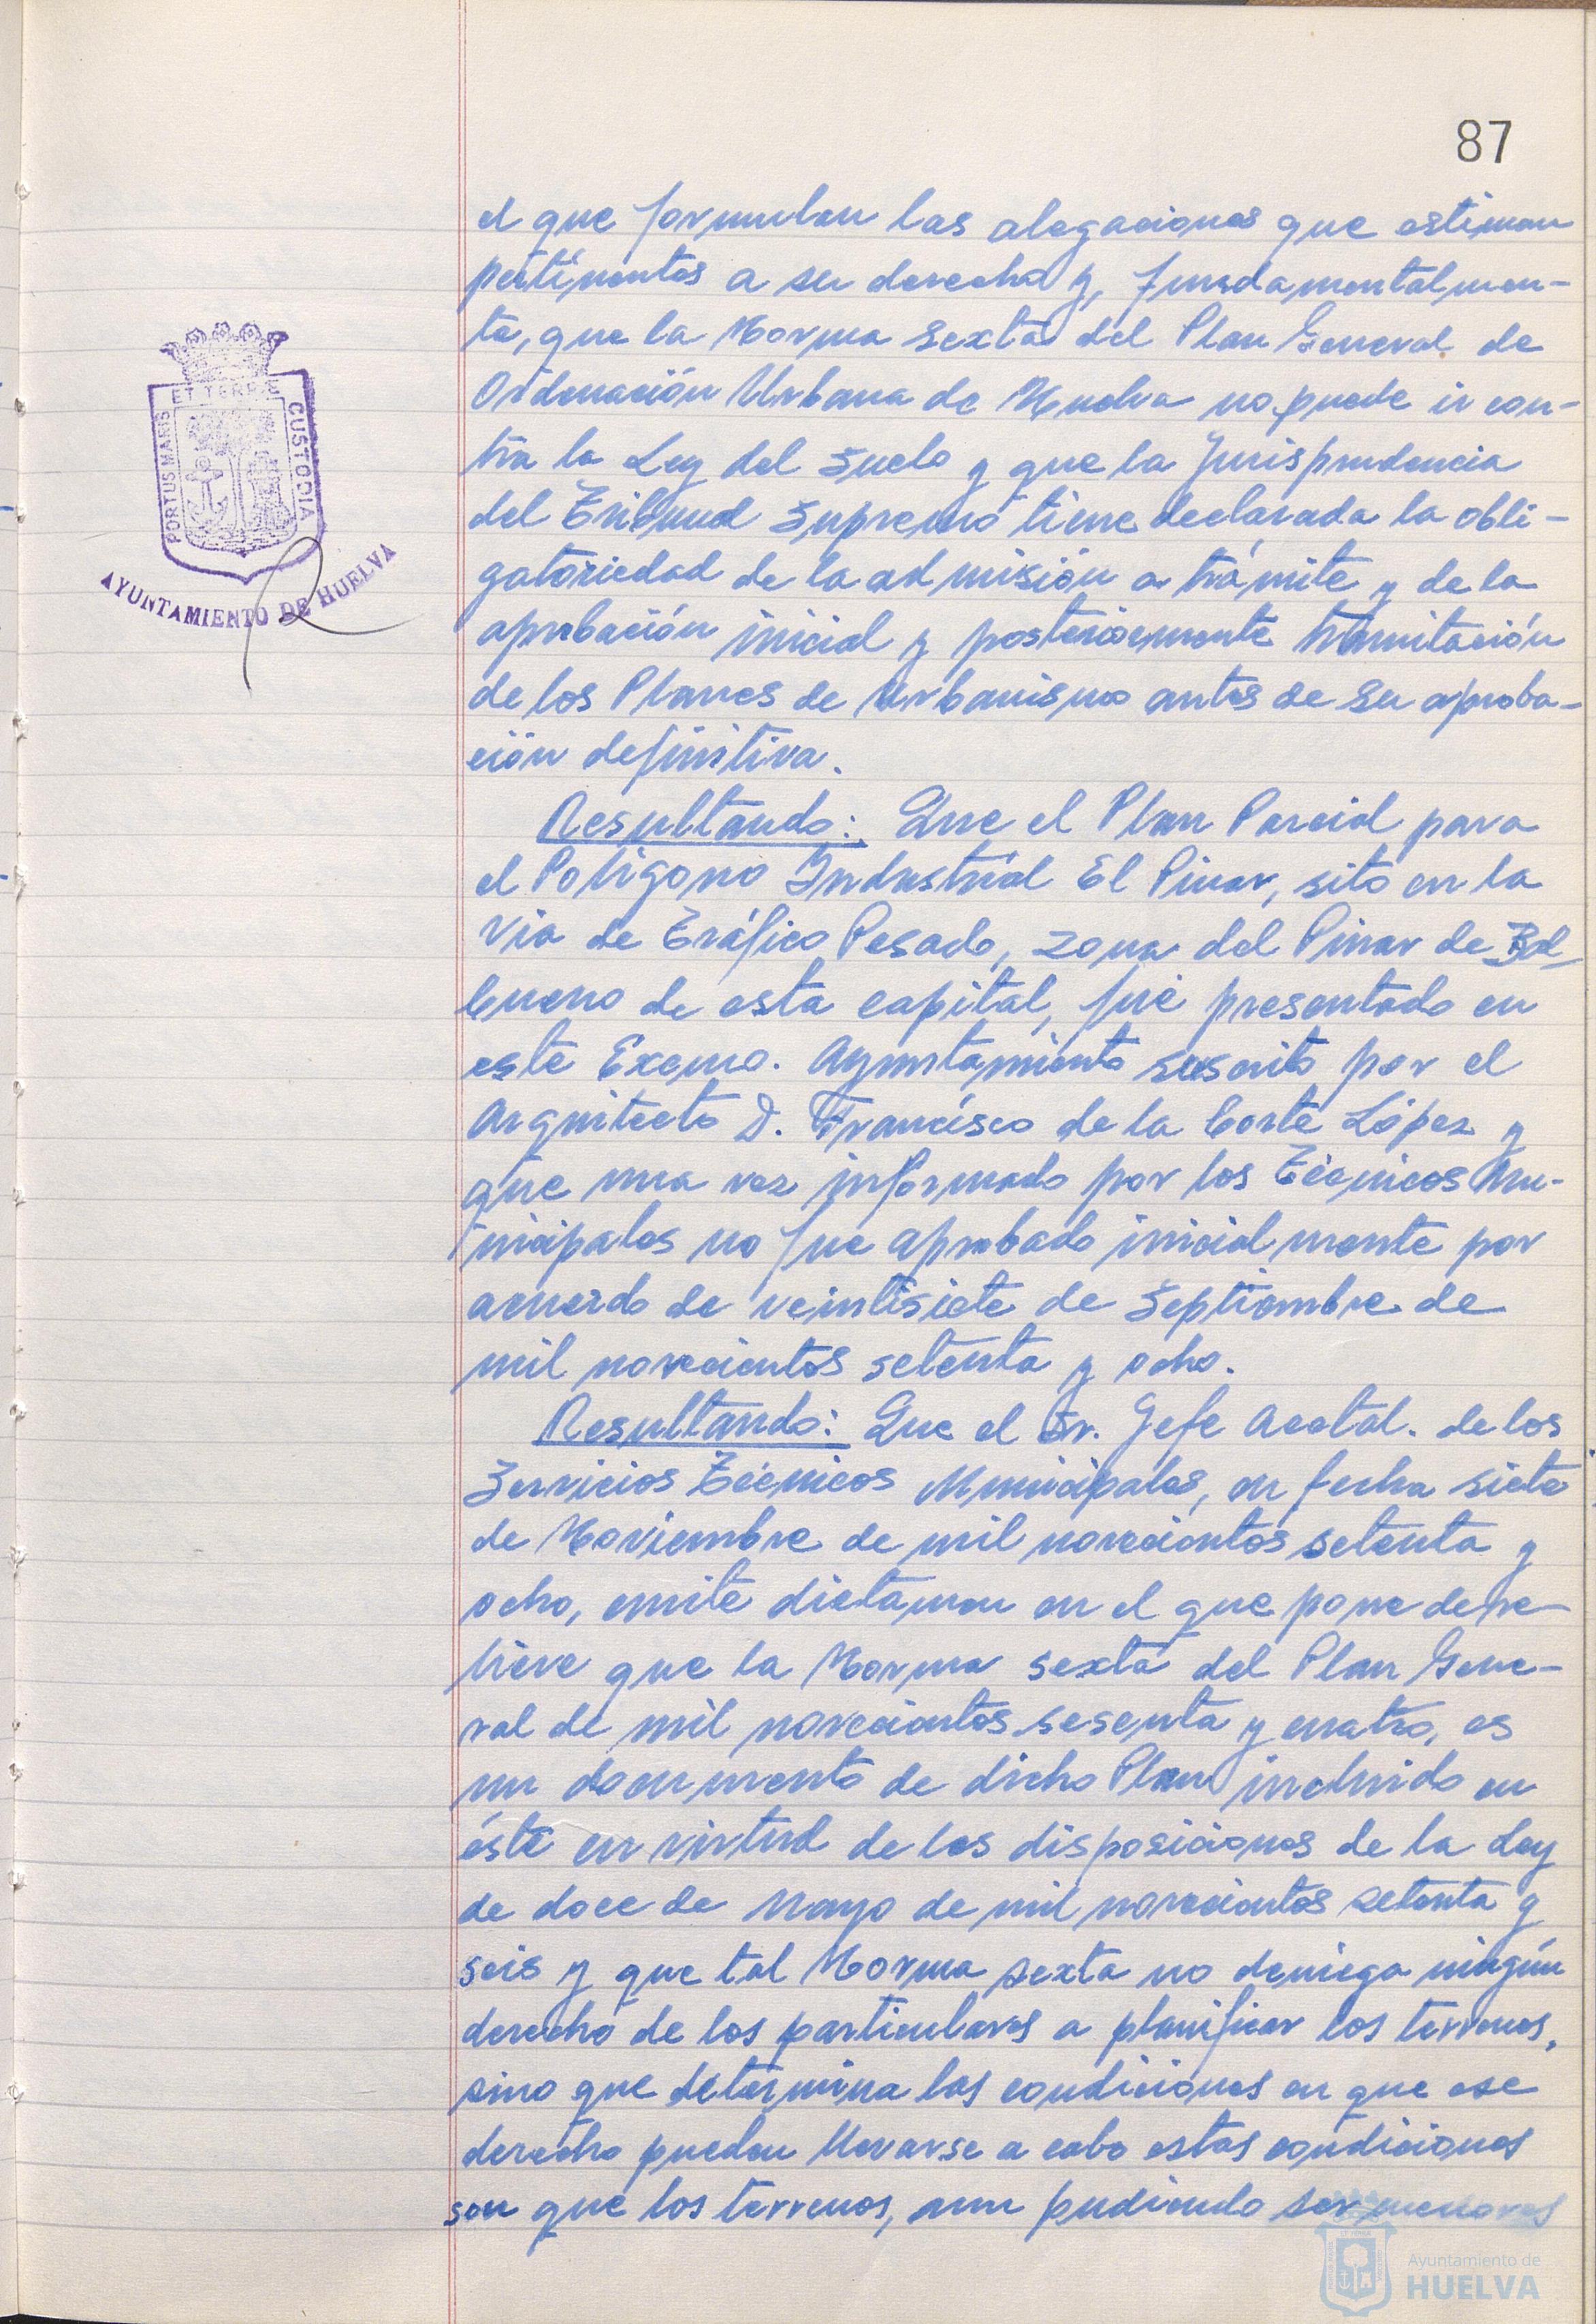 87
el que formulan las alegaciones que estiman
pertinentes a su derecho y, fundamentalmen-
te, que la Norma Sexta del Plan General de
Ordenación Urbana de Huelva no puede ir con-
tra la Ley del Suelo y que la Jurisprudencia
del Tribunal Supremo tiene declarada la obli-
gatoriedad de la admisión a trámite y de la
aprobación inicial y posteriormente tramitación
de los Planes de Urbanismo antes de su aproba-
ción definitiva.
Resultando: Que el Plan Parcial para
el Poligono Industrial El Pinar, sito en la
Via de Tráfico Pesado, zona del Pinar de Bal-
bueno de esta capital, fué presentado en
este Excmo. Ayuntamiento suscrito por el
Arquitecto D. Francisco de la Corte López y
que una vez informado por los Técnicos Mu-
nicipales no fue aprobado inicialmente por
acuerdo de veintisiete de Septiembre de
mil novecientos setenta y ocho.
Resultando: Que el Sr. Jefe Acctal. de los
Servicios Técnicos Municipales, en fecha siete
de Noviembre de mil novecientos setenta y
ocho, emite dictamen en el que pone de re-
lieve que la Norma sexta del Plan Gene-
ral de mil novecientos sesenta y cuatro, es
un documento de dicho Plan incluido en
éste en virtud de las disposiciones de la Ley
de doce de Mayo de mil novecientos setenta y
seis y que tal Norma sexta no deniega ningún
derecho de los particulares a planificar los terrenos,
sino que determina las condiciones en que ese
derecho pueden llevarse a cabo estas condiciones
son que los terrenos, aun pudiendo ser menores
PORTUS MARIS ET TERRE CUSTODIA
AYUNTAMIENTO DE HUELVA
Ayuntamiento de
HUELVA